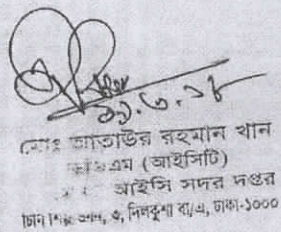 ২১.৩.১৮
মোঃ আতাউর রহমান খান
এম (আইসিটি)
আইসি সদর দপ্তর
৫, দিলকুশা বা/এ, ঢাকা-১০০০